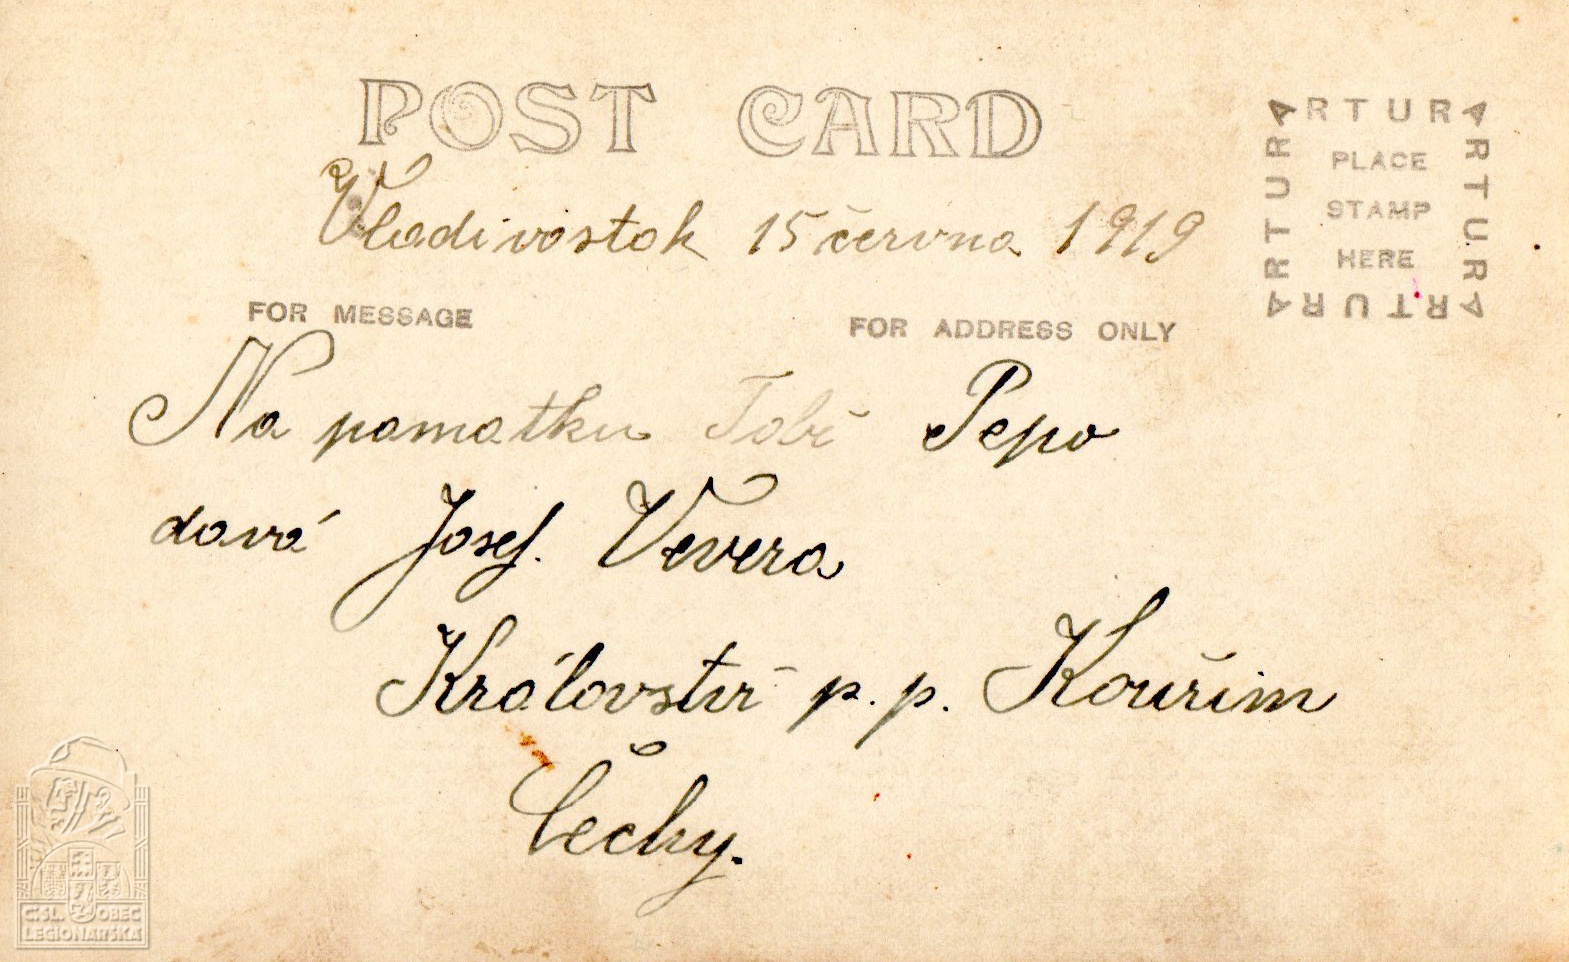 POST CARD
Vladivostok 15 června 1919
ARTURA
ARTURA
ARTURA
ARTURA
PLACE
STAMP
HERE
FOR MESSAGE
FOR ADDRESS ONLY
Na pamatku Tobě Pepo
dává Josef. Vevera
Království p.p. Kouřim
Čechy.
Č:SL. OBEC
LEGIONÁŘSKÁ